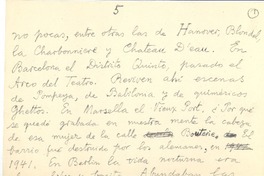 5
1
no pocas, entre otras las de Hanover, Blondel,
la Charbonniere y Chateau D'eau. En
Barcelona el Distrito Quinto, pasado el
Arco del Teatro. Reviven ahi escenas
de Pompeya, de Babilonia y de quiméricos
Ghettos. En Marsella el Vieux Port. ¿Por qué
se quedó grabada en nuestra mente la cabeza
de esa mujer de la calle El
barrio fue destruido por los alemanes, en
1941. En Berlin la vida nocturna era
Abundaban las